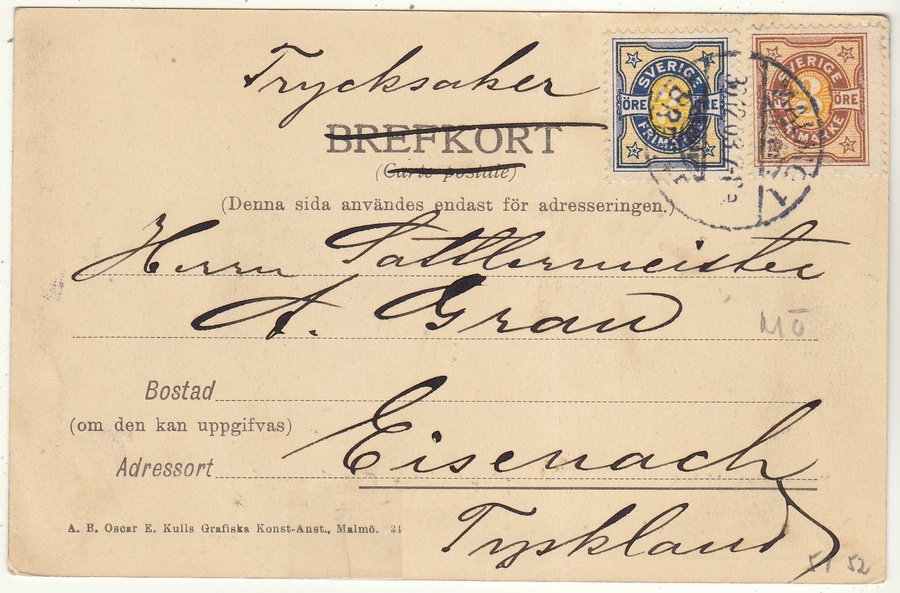 Trycksaker
BREFKORT
(Carte postale)
(Denna sida användes endast för adresseringen.)
SVERIGE
ÖRE ÖRE
FRIMÄRKE
SVERIGE
2 ÖRE
FRIMÄRKE
30.12.03
Herrn Sattlermeister
A. Grau
MÖ
Bostad
(om den kan uppgifvas)
Adressort
Eisenach
Tyskland
A. B. Oscar E. Kulls Grafiska Konst-Anst., Malmö. 24
51 52